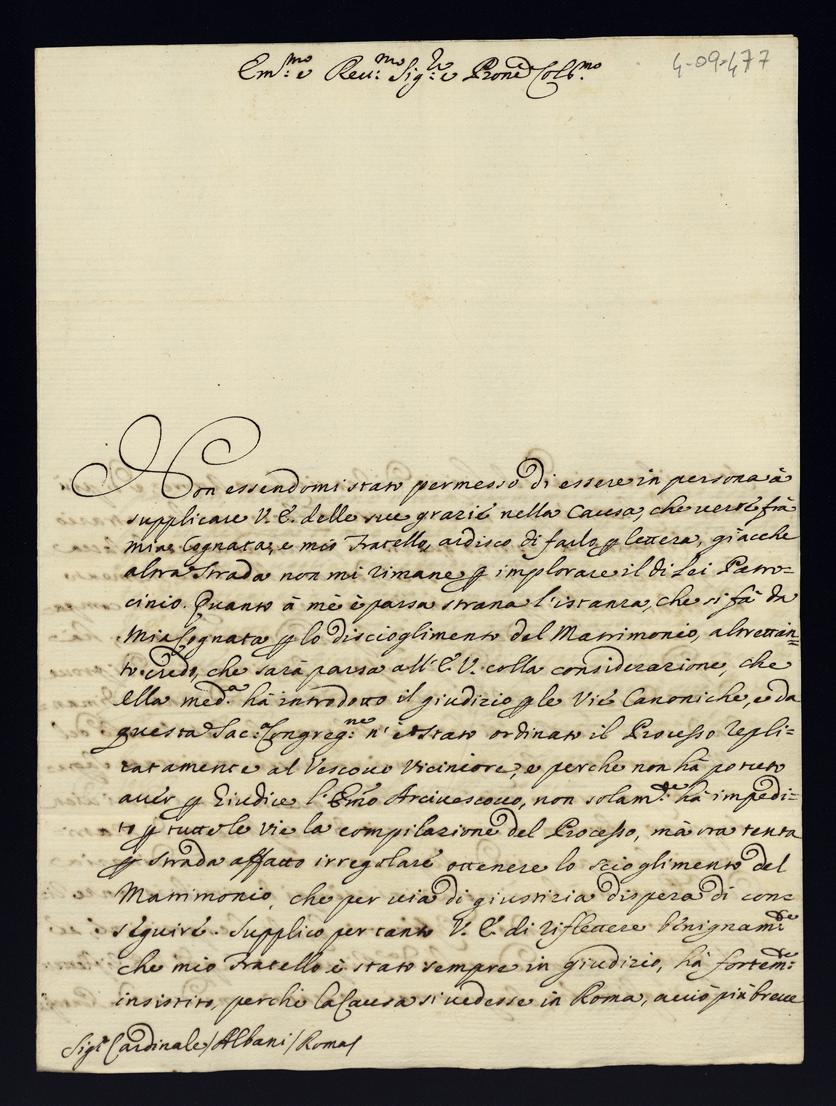 Em.mo e Reu.mo Sig.re e Prone Colb.mo
4-09-477
Non essendomi stato permesso di essere in persona à
supplicare V. E. delle sue grazie nella Causa, che verte frà
mia Cognata, e mio Fratello, ardisco di farlo p lettera, giacche
altra strada non mi rimane p implorare il di Lei Patro=
cinio. Quanto à mè è parsa strana l'istanza, che si fà da
mia Cognata p lo discioglimento del Matrimonio, altrettan=
to credo, che sarà parsa all'E. V. colla considerazione, che
Ella med.a hà introdotto il giudizio p le Vie Canoniche, e da
questa Sac.a Congreg.ne n'è stato ordinato il Processo repli=
catamente al Vescovo Viciniore, e perche non hà potuto
aver p Giudice l'Emo Arcivescovo, non solam.te hà impedi=
to p tutte le vie la compilazione del Processo, mà ora tenta
p strada affatto irregolare ottenere lo scioglimento del
Matrimonio, che per via di giustizia dispera di con=
seguire. Supplico per tanto V. E. di riflettere benignam.te
che mio Fratello è stato sempre in giudizio, hà fortem.te
insistito, perche la Causa si vedesse in Roma, acciò più breve
Sig.r Cardinale / Albani / Roma /